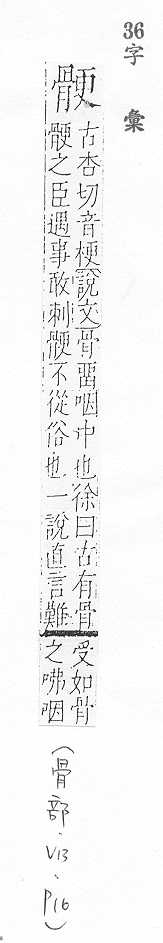 36字彙
骾
古杏切音梗說文骨畱咽中也徐曰古有骨
骾之臣遇事敢刺骾不從俗也一說直言難
受如骨
之咈咽
(骨部.V13、P16)